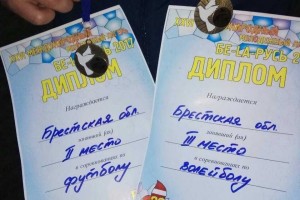 БЕ-LA-РУСЬ 2017
ДИПЛОМ
Награждается
Брестская обл.
занявший (ая)
II место
в соревнованиях по
футболу
БЕ-LA-РУСЬ 2
ДИПЛОМ
Награждается
Брестская обл.
занявший (ая)
III место
в соревнованиях по
волейболу